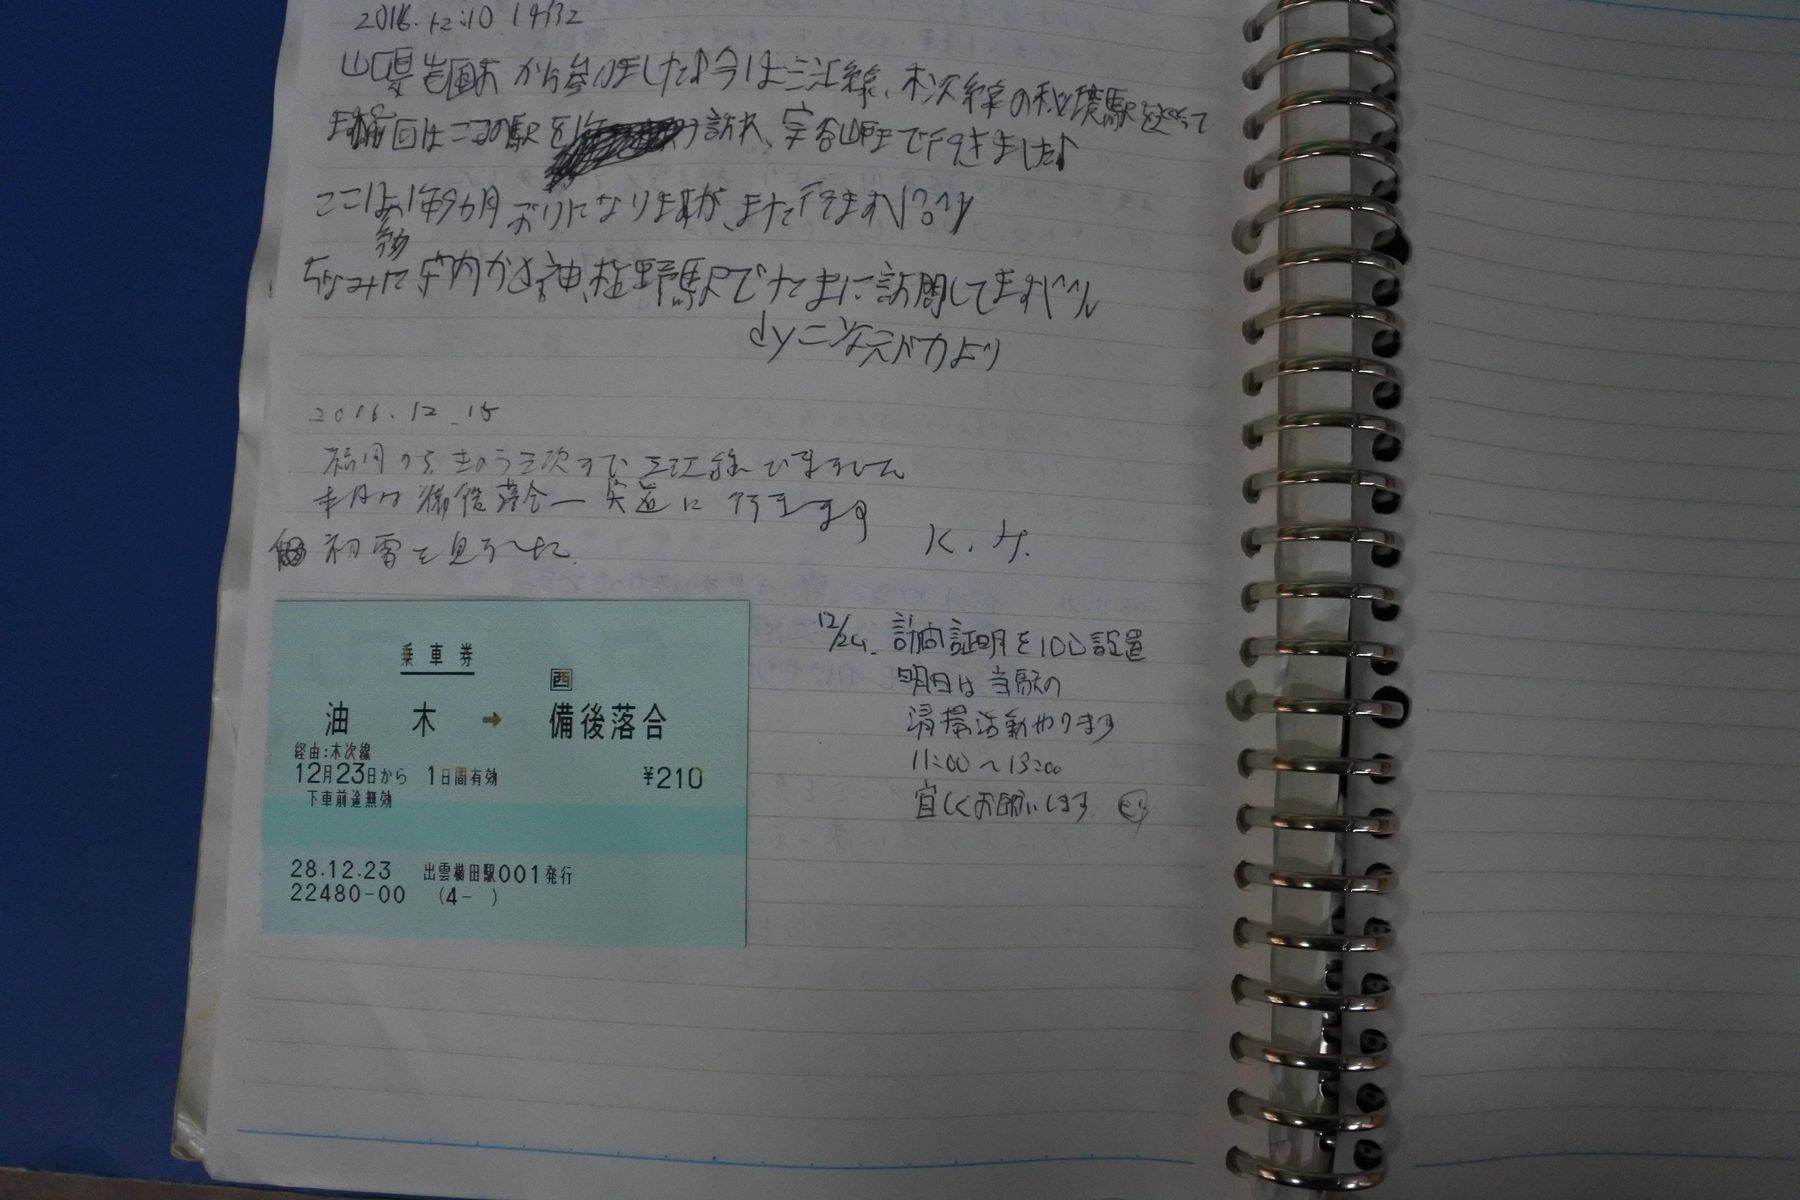 2016.12.10 14:32
山口県岩国市から参りました♪今は三江線、木次線の秘境駅を巡って
ます 前回はこの駅を 訪れ、
ここは1年9ヵ月ぶりになりますが、また行きます
ちなみに 市内から 神 野駅でたまに訪問してます
dy より
2016.12.15
きのう三次まで三江線できました
来月は備後落合ー宍道に行きます
初雪を見ました
K.H.
乗車券
西
油木→備後落合
経由:木次線
12月23日から 1日間有効 ¥210
下車前途無効
28.12.23 出雲横田駅001発行
22480-00 (4- )
12/24. 訪問証明を100設置
明日は当駅の
清掃活動やります
11:00〜13:00
宜しくお願いします。